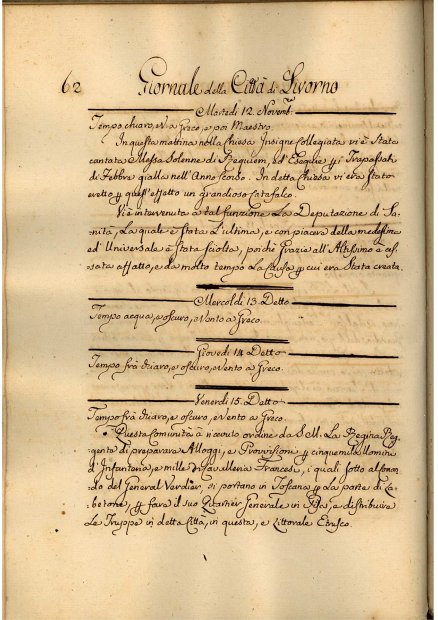 62 Giornale della Città di Livorno
Martedì 12. Novem.
Tempo chiaro, v.° a Greco, e poi Maestro.
In questa mattina nella Chiesa Insigne Collegiata vi è Stata
cantata Messa Solenne di Requiem, ed Esequie p i Trapassati
di Febbre gialla nell'Anno scorso. In detta Chiesa vi era Stato
eretto p quest'effetto un grandioso Catafalco.
Vi è intervenuta a tal funzione La Deputazione di Sa-
nità, La quale è Stata L'ultima, e con piacere della medesima
ed Universale è Stata sciolta, poichè Grazie all'Altissimo è ces-
sata affatto, e da molto tempo La Causa p cui era Stata creata.
Mercoldì 13. Detto
Tempo acqua, e oscuro, e vento a Greco.
Giovedì 14. Detto
Tempo frà chiaro, e oscuro, e vento a Greco.
Venerdì 15. Detto
Tempo frà chiaro, e oscuro, e vento a Greco.
Questa Comunità à ricevuto ordine da S. M. La Regina Reg-
gente di preparare Alloggi, e Provvisioni p cinquemila Uomini
d'Infanteria, e mille di Cavalleria Francesi, i quali sotto al coman-
do del General Verdier si portano in Toscana p La parte di La-
betone, p fare il suo Quartier Generale in Pisa, e distribuire
Le Truppe in detta Città, in questa, e Littorale Etrusco.